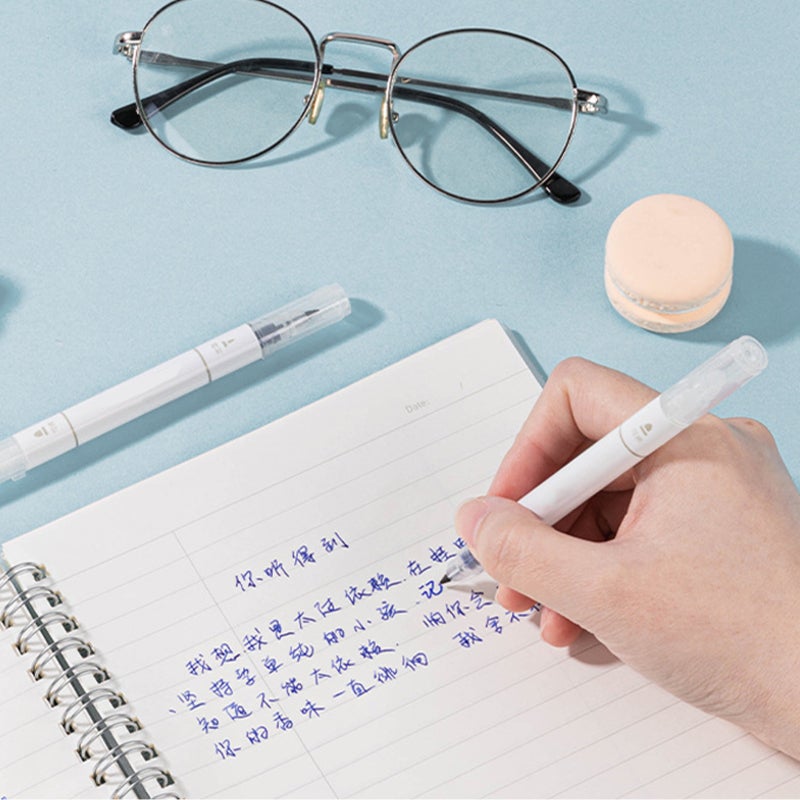 Date: /
你听得到
我想我是太过依赖.在
、坚持学单纯的小孩.记
知道不能太依赖. 怕你会
你的香味一直徘徊 我舍不